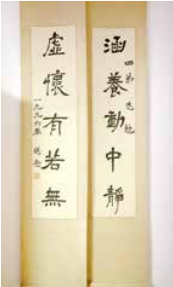 涵養動中靜
虛懷有若無
一九九六年